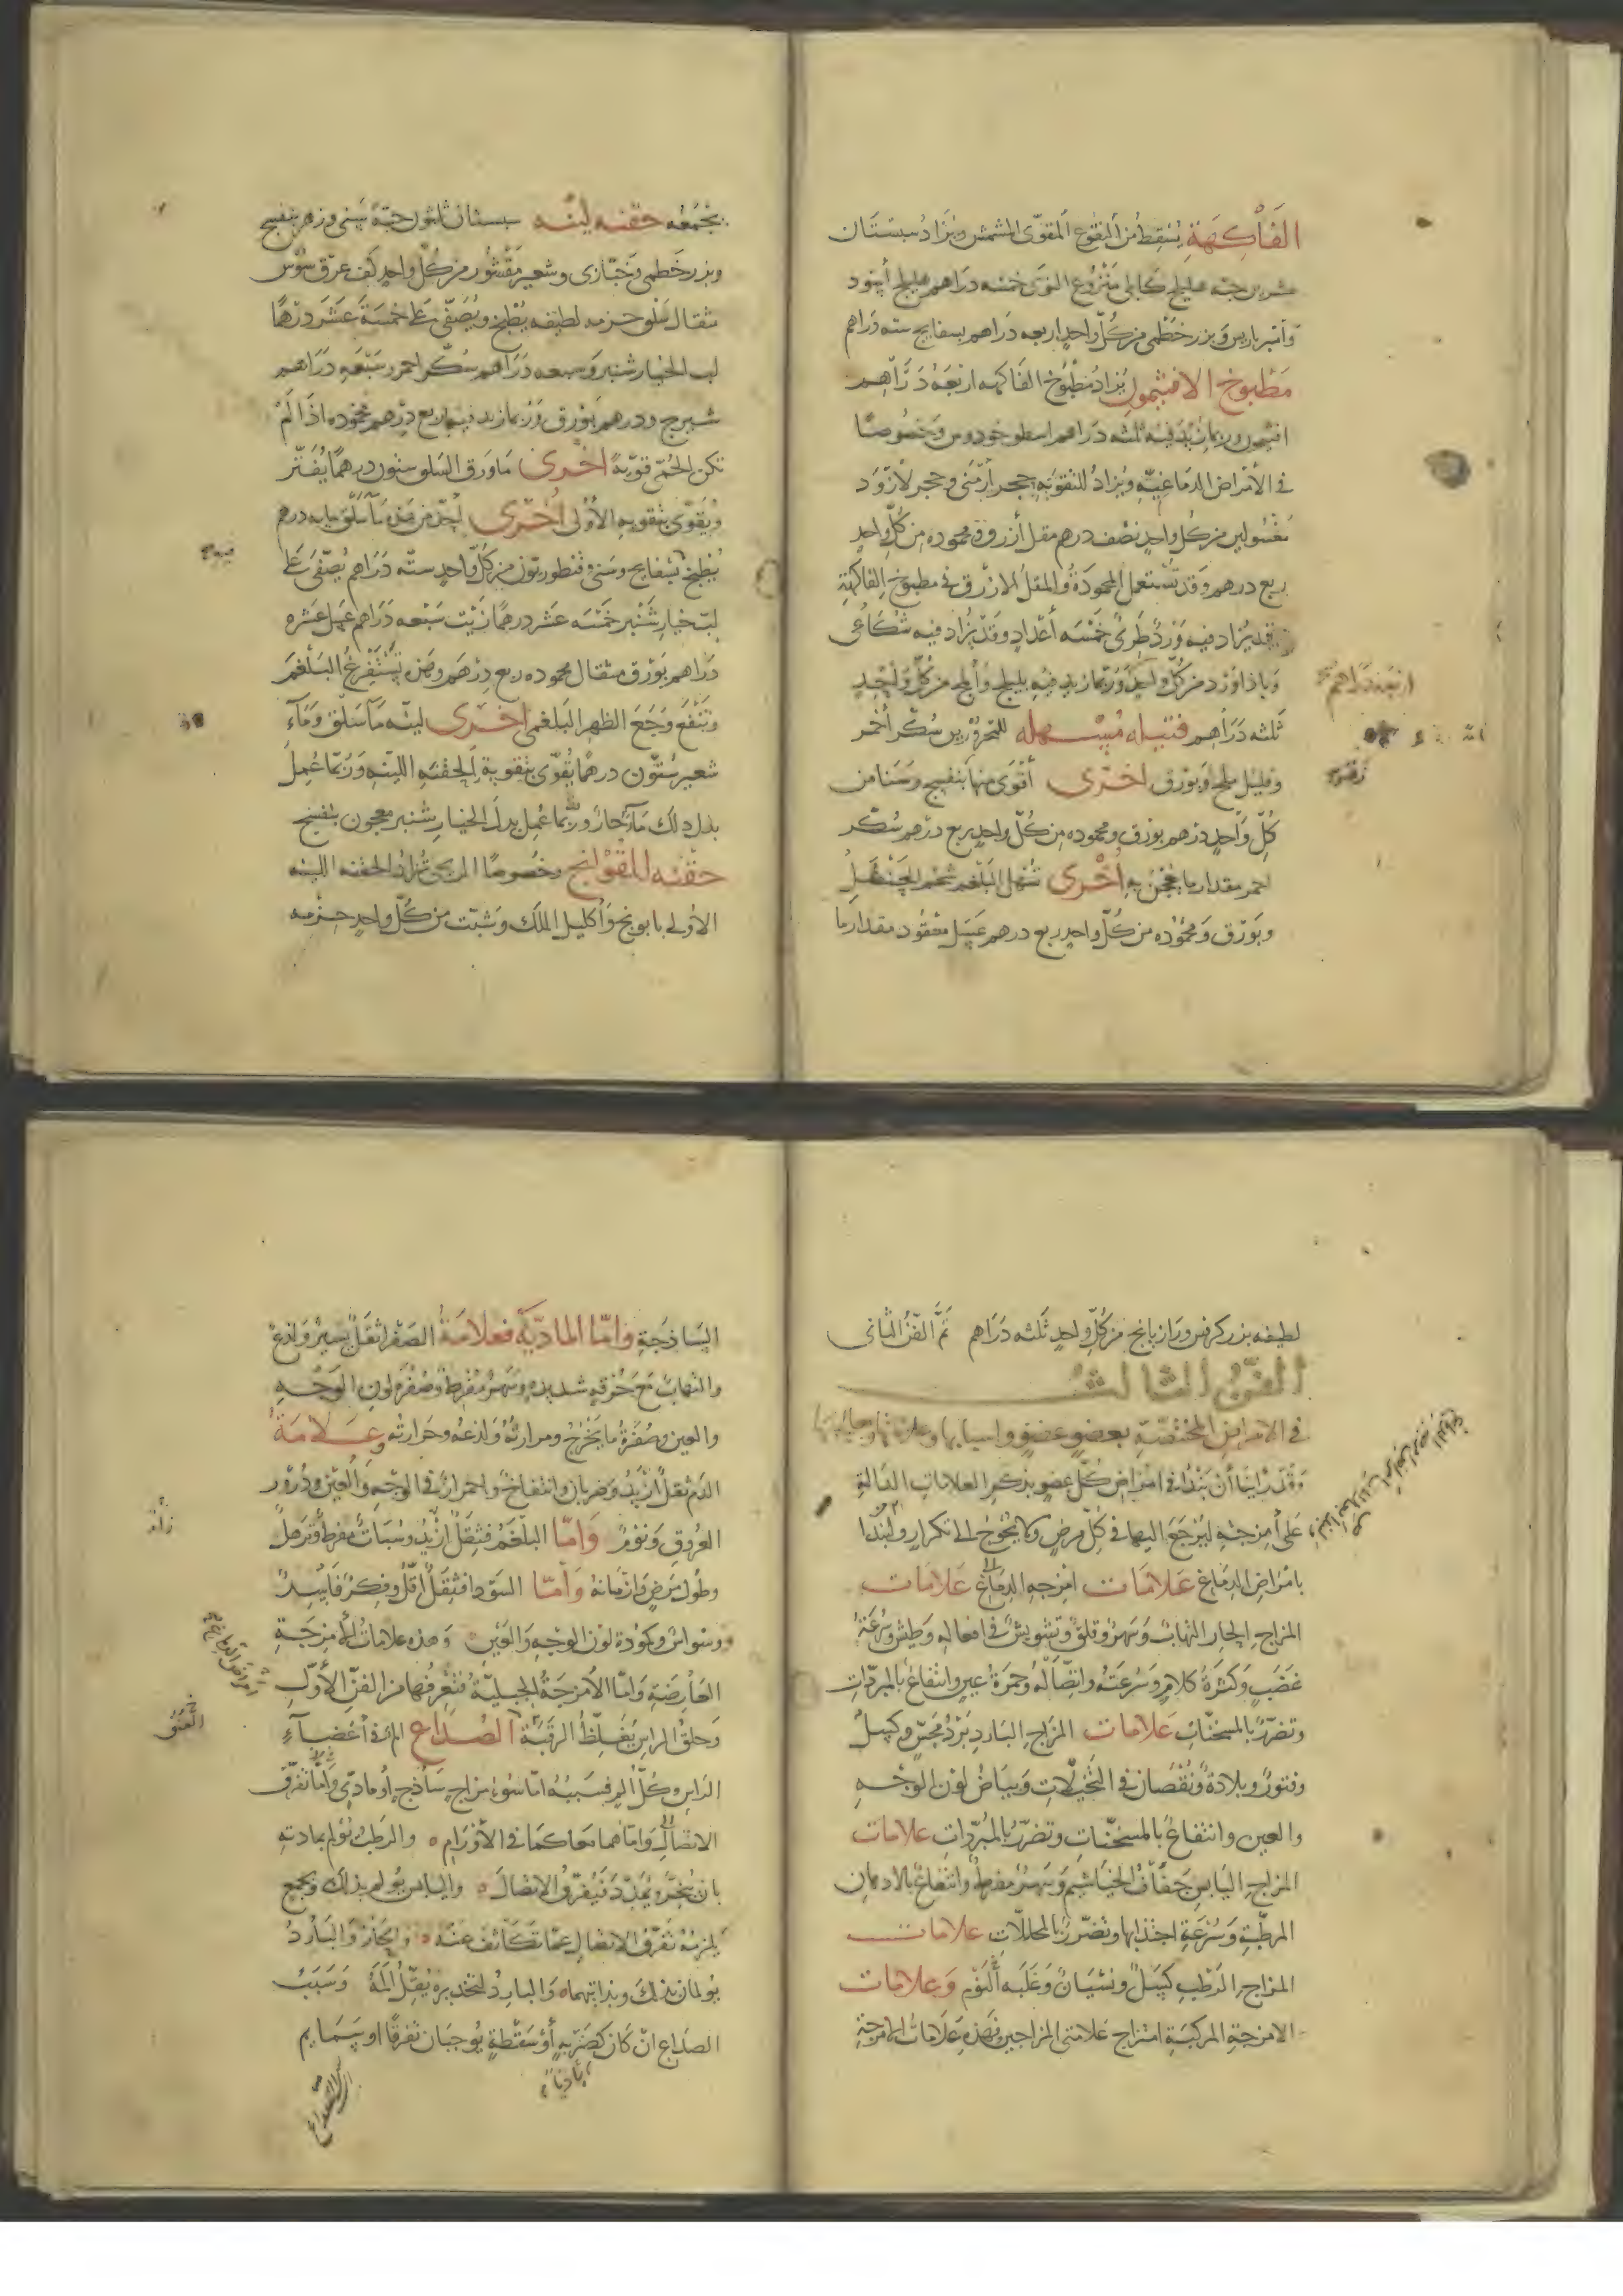 الفاكهة يسقط من النقوع المقوى المشمش ويزاد سبستان
عشرين حبه هليلج كابلي منزوع النوى خمسه دراهم هليلج أسود
وأمبرباريس وبزر خطمى من كل واحد اربعه دراهم بسفايج سته دراهم
مطبوخ الافتيمون يزاد مطبوخ الفاكهه اربعة دراهم
افتيمون وربما زيد فيه ثلثه دراهم اسطوخودوس وخصوصا
في الأمراض الدماغية ويزاد للتقوية حجر أرمنى وحجر لازورد
مغسولين من كل واحد نصف درهم مقل أزرق ومحموده من كل واحد
ربع درهم وقد تستعمل المحمودة والمقل الازرق في مطبوخ الفاكهة
وقد يزاد فيه ورد طرى خمسه أعداد وقد يزاد فيه شكاعى
وباذاورد من كل واحد وربما زيد فيه بليلج وأملج من كل واحد
اربعة دراهم
ثلثه دراهم فتيله مسهله للمحرورين سكر أحمر
وقليل ملح وبورق اخرى أقوى منها بنفسج وسنا من
كل واحد درهم بورق ومحموده من كل واحد ربع درهم سكر
احمر مقدار ما يعجن به أخرى تسهل البلغم شحم الحنظل
وبورق ومحموده من كل واحد ربع درهم عسل معقود مقدار ما
يجمعه حقنه لينه سبستان ثلثون حبة سنى وزهر بنفسج
وبزر خطمى وخبازى وشعير مقشور من كل واحد كف عرق سوس
مثقال سلق حزمه لطيفه يطبخ ويصفى على خمسة عشر درهما
لب الخيار شنبر وسبعه دراهم سكر احمر وسبعه دراهم
شيرج ودرهم بورق وربما زيد فيها ربع درهم محموده اذا لم
تكن الحمى قوية اخرى ما ورق السلق ستون درهما يفتر
ويقوى بتقويه الأولى أخرى لين من ما سلق مايه درهم
يطبخ بسفايج وسنى وقنطوريون من كل واحد سته دراهم يصفى على
لب خيار شنبر خمسه عشر درهما زيت سبعه دراهم عسل عشره
دراهم بورق مثقال محموده ربع درهم وهذه تستفرغ البلغم
وتنفع وجع الظهر البلغمى اخرى لينه ما سلق وماء
شعير ستون درهما يقوى بتقوية الحقنه اللينه وربما عمل
بدل ذلك ماء حار وربما عمل بدل الخيار شنبر معجون بنفسج
حقنه للقولنج وخصوصا الريحى تزاد الحقنه اللينه
الأولى بابونج وأكليل الملك وشبت من كل واحد حزمه
لطيفه بزر كرفس ورازيانج من كل واحد ثلثه دراهم تم الفن الثانى
الفن الثالث
في الامراض المختصة بعضو عضو واسبابها وعلاماتها ومعالجاتها
وقد رأينا أن نبتدئ في امراض كل عضو بذكر العلامات الدالة
على أمزجته ليرجع اليها في كل مرض ولا يحوج الى تكرار ولنبتدا
بامراض الدماغ علامات امزجه الدماغ علامات
المزاج الحار التهاب وسهر وقلق وتشويش في افعاله وطيش وسرعة
غضب وكثرة كلام وسرعته واتصاله وحمرة عين وانتفاع بالمبردات
وتضرر بالمسخنات علامات المزاج البارد برد مجس وكسل
وفتور وبلادة ونقصان في التخيلات وبياض لون الوجه
والعين وانتفاع بالمسخنات وتضرر بالمبردات علامات
المزاج اليابس جفاف الخياشيم وسهر مفرط وانتفاع بالادهان
المرطبة وسرعة اجتذابها وتضرر بالمحللات علامات
المزاج الرطب كسل ونسيان وغلبه النوم وعلامات
الامزجة المركبة امتزاج علامتى المزاجين فهذه علامات الامزجة
الساذجة واما المادية فعلامة الصفرا ثقل يسير ولذع
والتهاب مع حرقه شديده وسهر مفرط وصفره لون الوجه
والعين وصفرة ما يخرج ومرارته ولذعه وحرارته وعلامة
الدم ثقل أزيد وضربان وانتفاخ واحمرار في الوجه والعين ودرور
العروق ونوم واما البلغم فثقل ازيد وسبات مفرط وترهل
وطول مرض وازمانه وأما السودا فثقل أقل وفكر فاسد
ووسواس وكمودة لون الوجه والعين وهذه علامات الأمزجة
العارضة واما الأمزجة الجبلية فتعرفها من الفن الأول
وحلق الراس يغلظ الرقبة الصداع الم في أعضاء
الراس وكل الم فسببه اما سوء مزاج ساذج أو مادى واما تفرق
الاتصال واما هما معا كما في الأورام والرطب يؤلم بمادته
بان يتبخر فيمدد فيفرق الاتصال واليابس يؤلم بذلك وبجمع
يلزمه تفرق الاتصال عما تكاثف عنه والحار والبارد
يولمان بذلك وبذاتهما والبارد لتخديره يقل ألمه وسبب
الصداع ان كان كضربه أو سقطة يوجبان تفرقا او